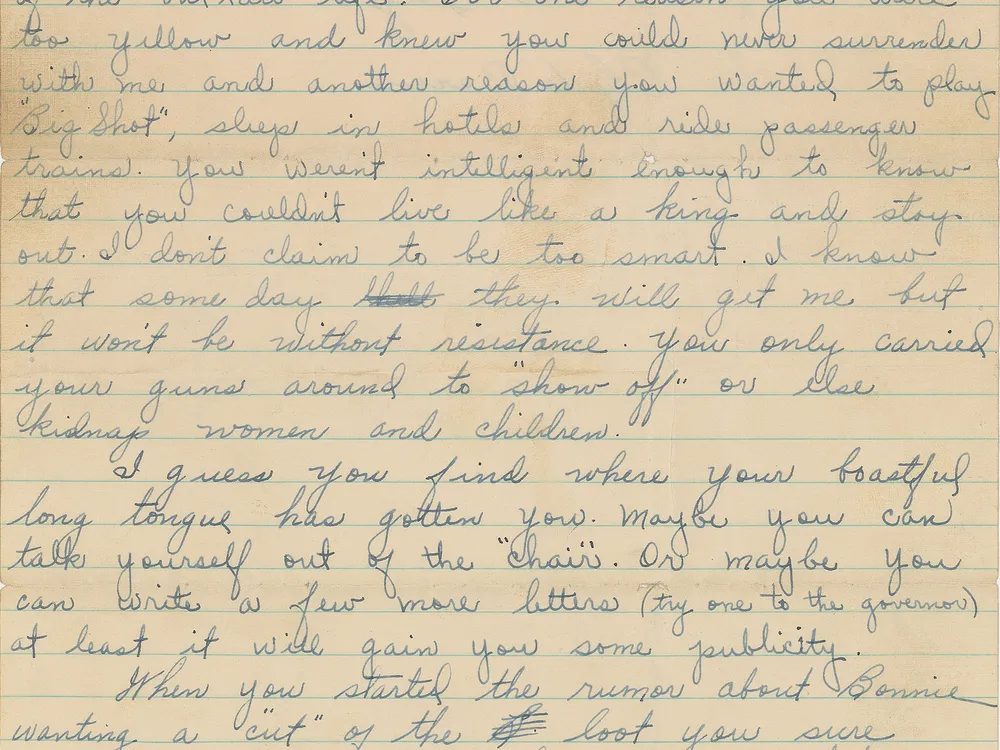 too yellow and knew you could never surrender
with me and another reason you wanted to play
"Big Shot", sleep in hotels and ride passenger
trains. You weren't intelligent enough to know
that you couldn't live like a king and stay
out. I don't claim to be too smart. I know
that some day they will get me but
it won't be without resistance. You only carried
your guns around to "show off" or else
kidnap women and children.
I guess you find where your boastful
long tongue has gotten you. Maybe you can
talk yourself out of the "chair". Or maybe you
can write a few more letters (try one to the governor)
at least it will gain you some publicity.
When you started the rumor about Bonnie
wanting a "cut" of the loot you sure